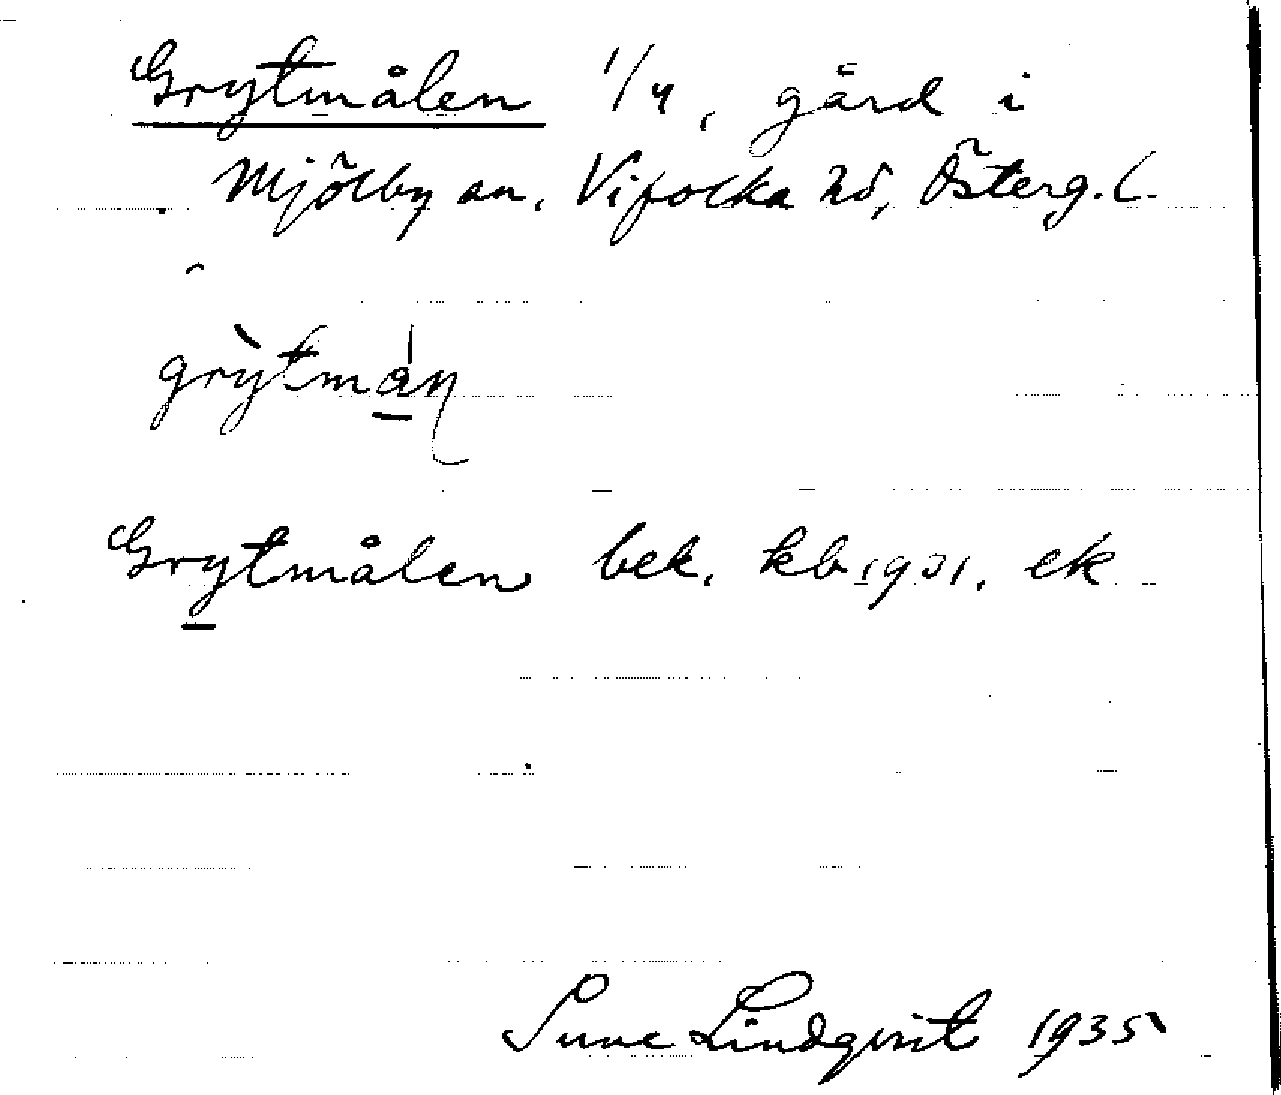 Grytmålen 1/4, gård i
Mjölby sn, Vifolka hd, Österg. l.
grỳtmán
Grytmålen bek. kb 1901. ek
Sune Lindqvist 1935